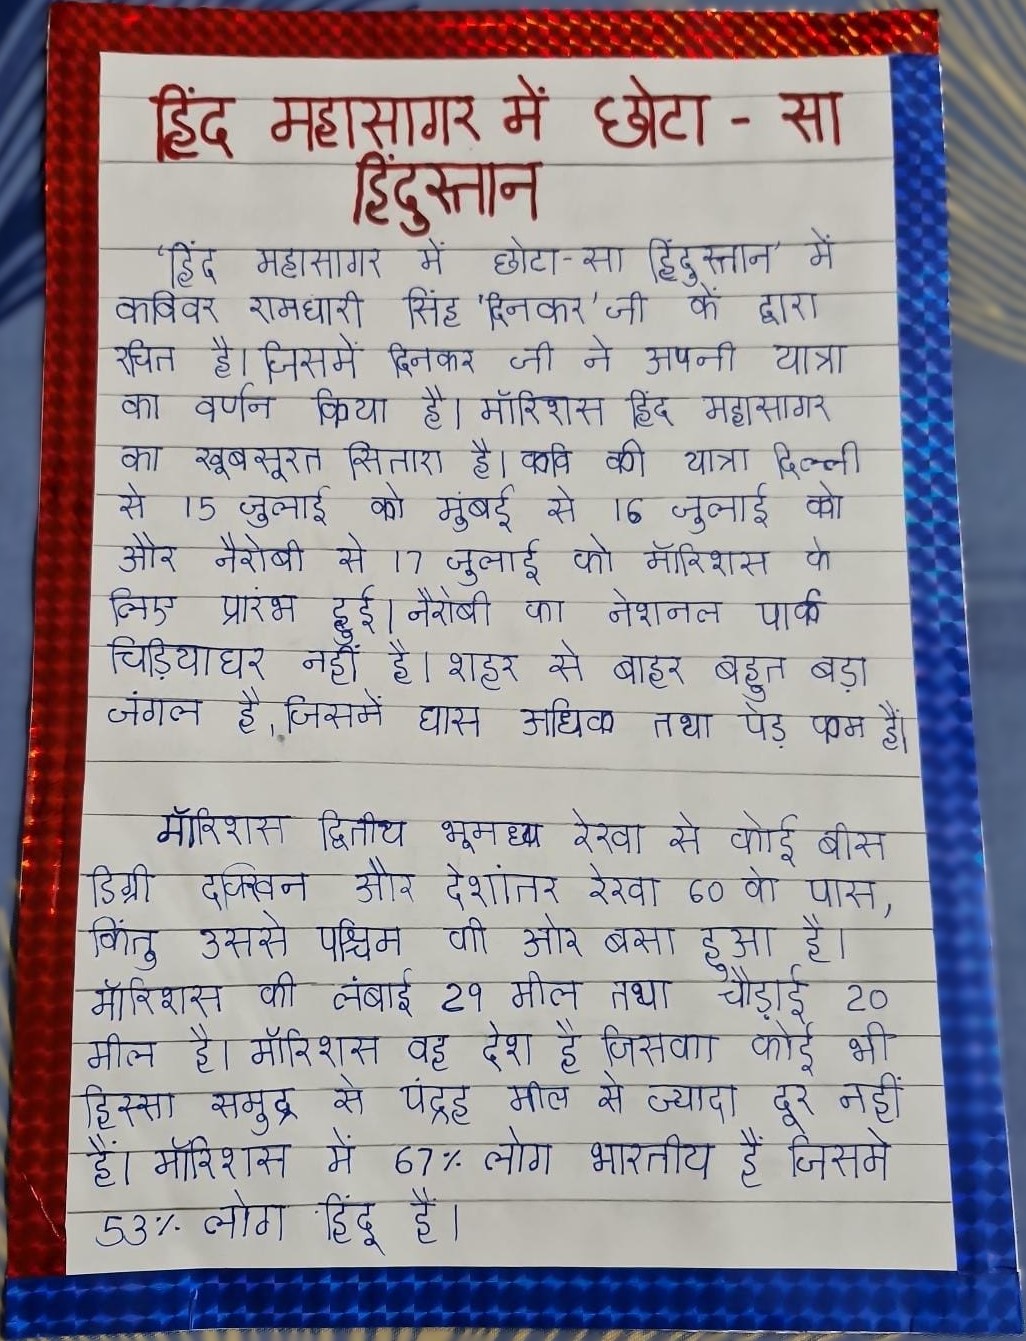 हिंद महासागर में छोटा - सा
हिंदुस्तान
'हिंद महासागर में छोटा-सा हिंदुस्तान' में
कविवर रामधारी सिंह 'दिनकर' जी के द्वारा
रचित है। जिसमें दिनकर जी ने अपनी यात्रा
का वर्णन किया है। मॉरिशस हिंद महासागर
का खूबसूरत सितारा है। कवि की यात्रा दिल्ली
से 15 जुलाई को मुंबई से 16 जुलाई को
और नैरोबी से 17 जुलाई को मॉरिशस के
लिए प्रारंभ हुई। नैरोबी का नेशनल पार्क
चिड़ियाघर नहीं है। शहर से बाहर बहुत बड़ा
जंगल है, जिसमें घास अधिक तथा पेड़ कम हैं।
मॉरिशस द्वितीय भूमध्य रेखा से कोई बीस
डिग्री दक्खिन और देशांतर रेखा 60 के पास,
किंतु उससे पश्चिम की ओर बसा हुआ है।
मॉरिशस की लंबाई 29 मील तथा चौड़ाई 20
मील है। मॉरिशस वह देश है जिसका कोई भी
हिस्सा समुद्र से पंद्रह मील से ज्यादा दूर नहीं
हैं। मॉरिशस में 67% लोग भारतीय हैं जिसमे
53% लोग हिंदू हैं।